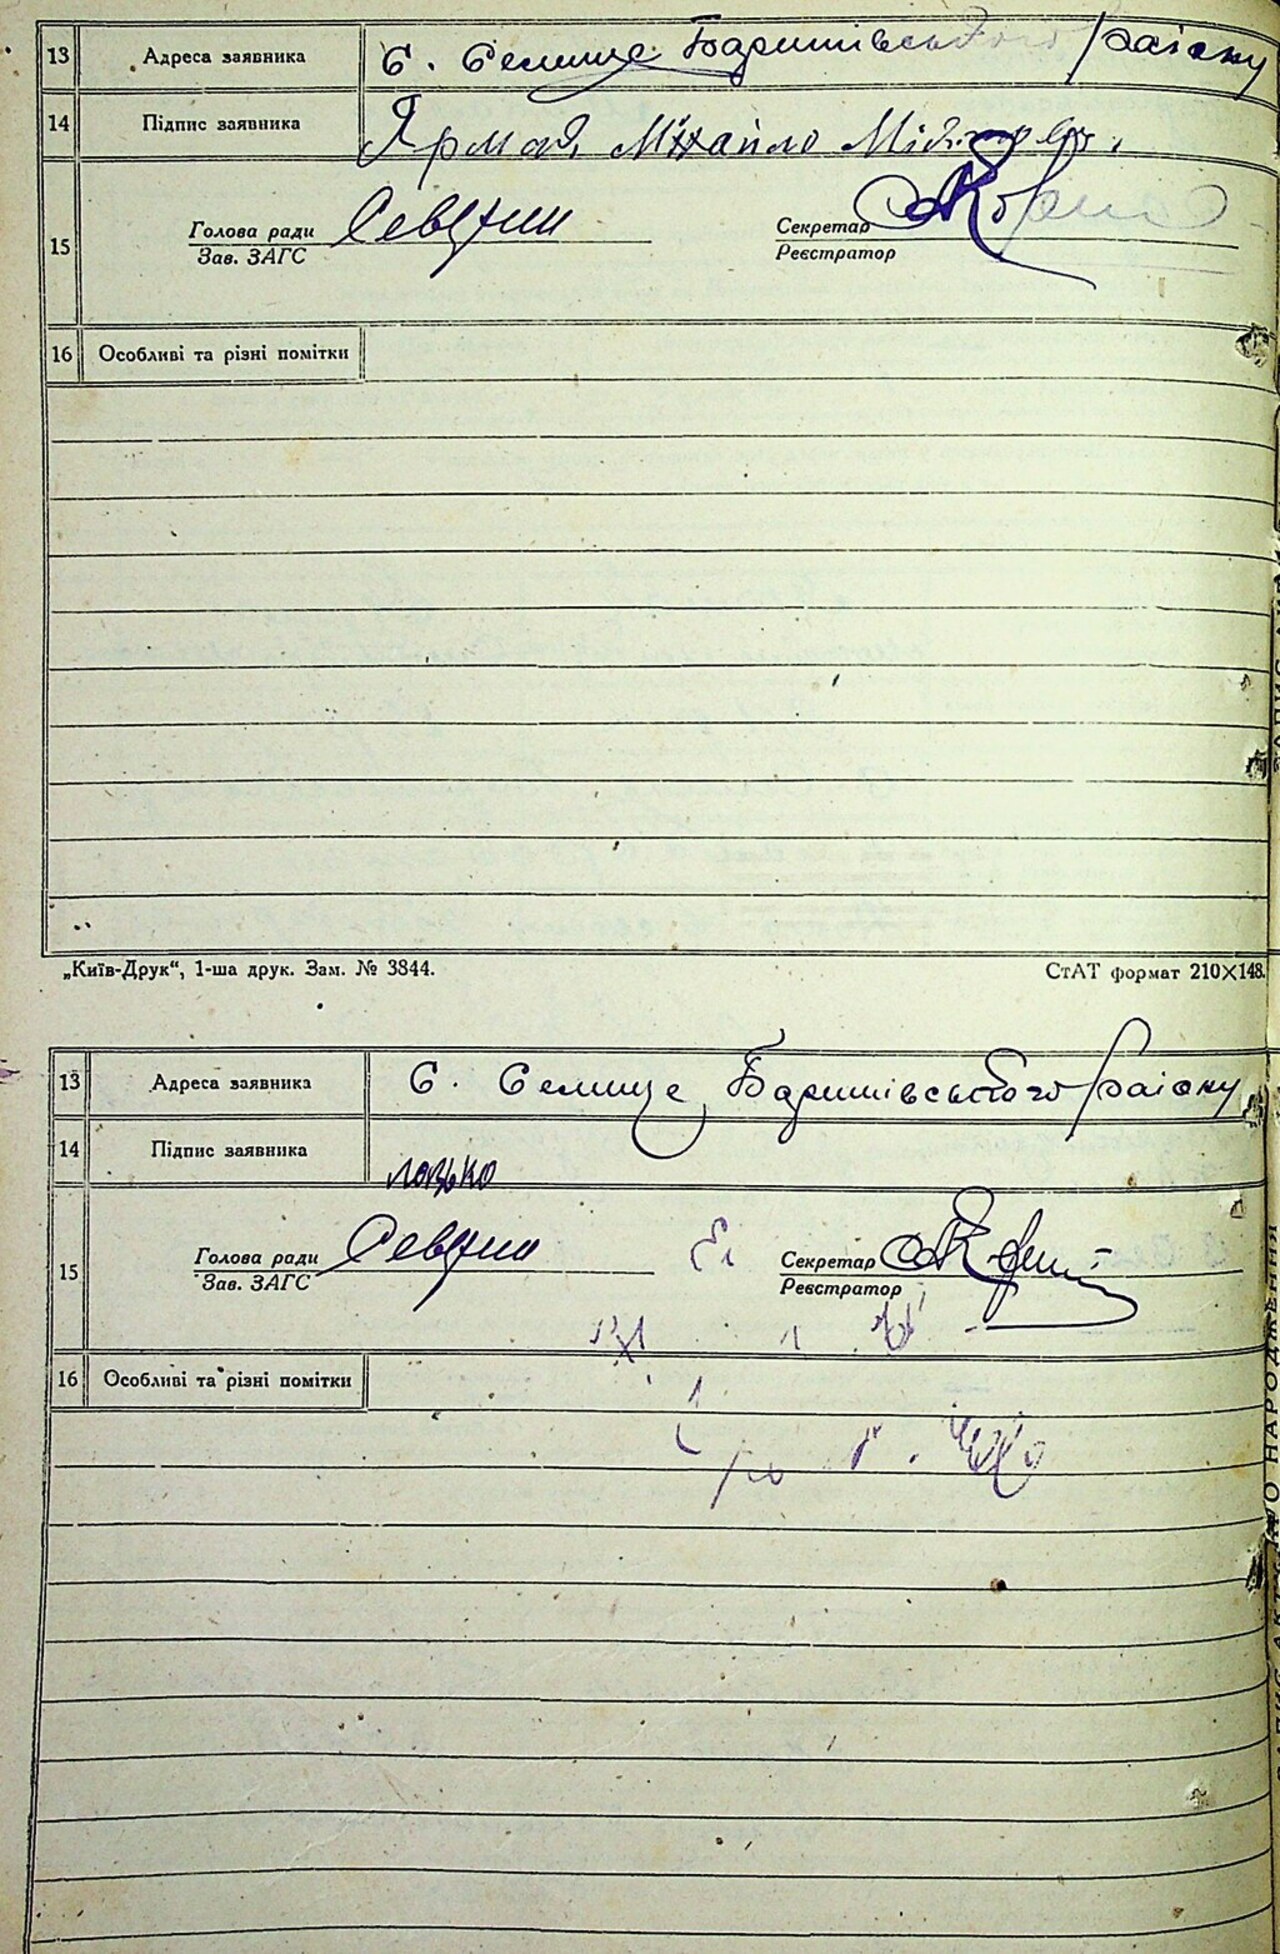 13 Адреса заявника с. Селище Баришівського району
14 Підпис заявника Михайло
15 Голова ради Секретар
Зав. ЗАГС Реєстратор
16 Особливі та різні помітки
„Київ-Друк“, 1-ша друк. Зам. № 3844. СтАТ формат 210×148.
13 Адреса заявника с. Селище Баришівського району
14 Підпис заявника
15 Голова ради Секретар
Зав. ЗАГС Реєстратор
16 Особливі та різні помітки
НАРОДЖЕННЯ